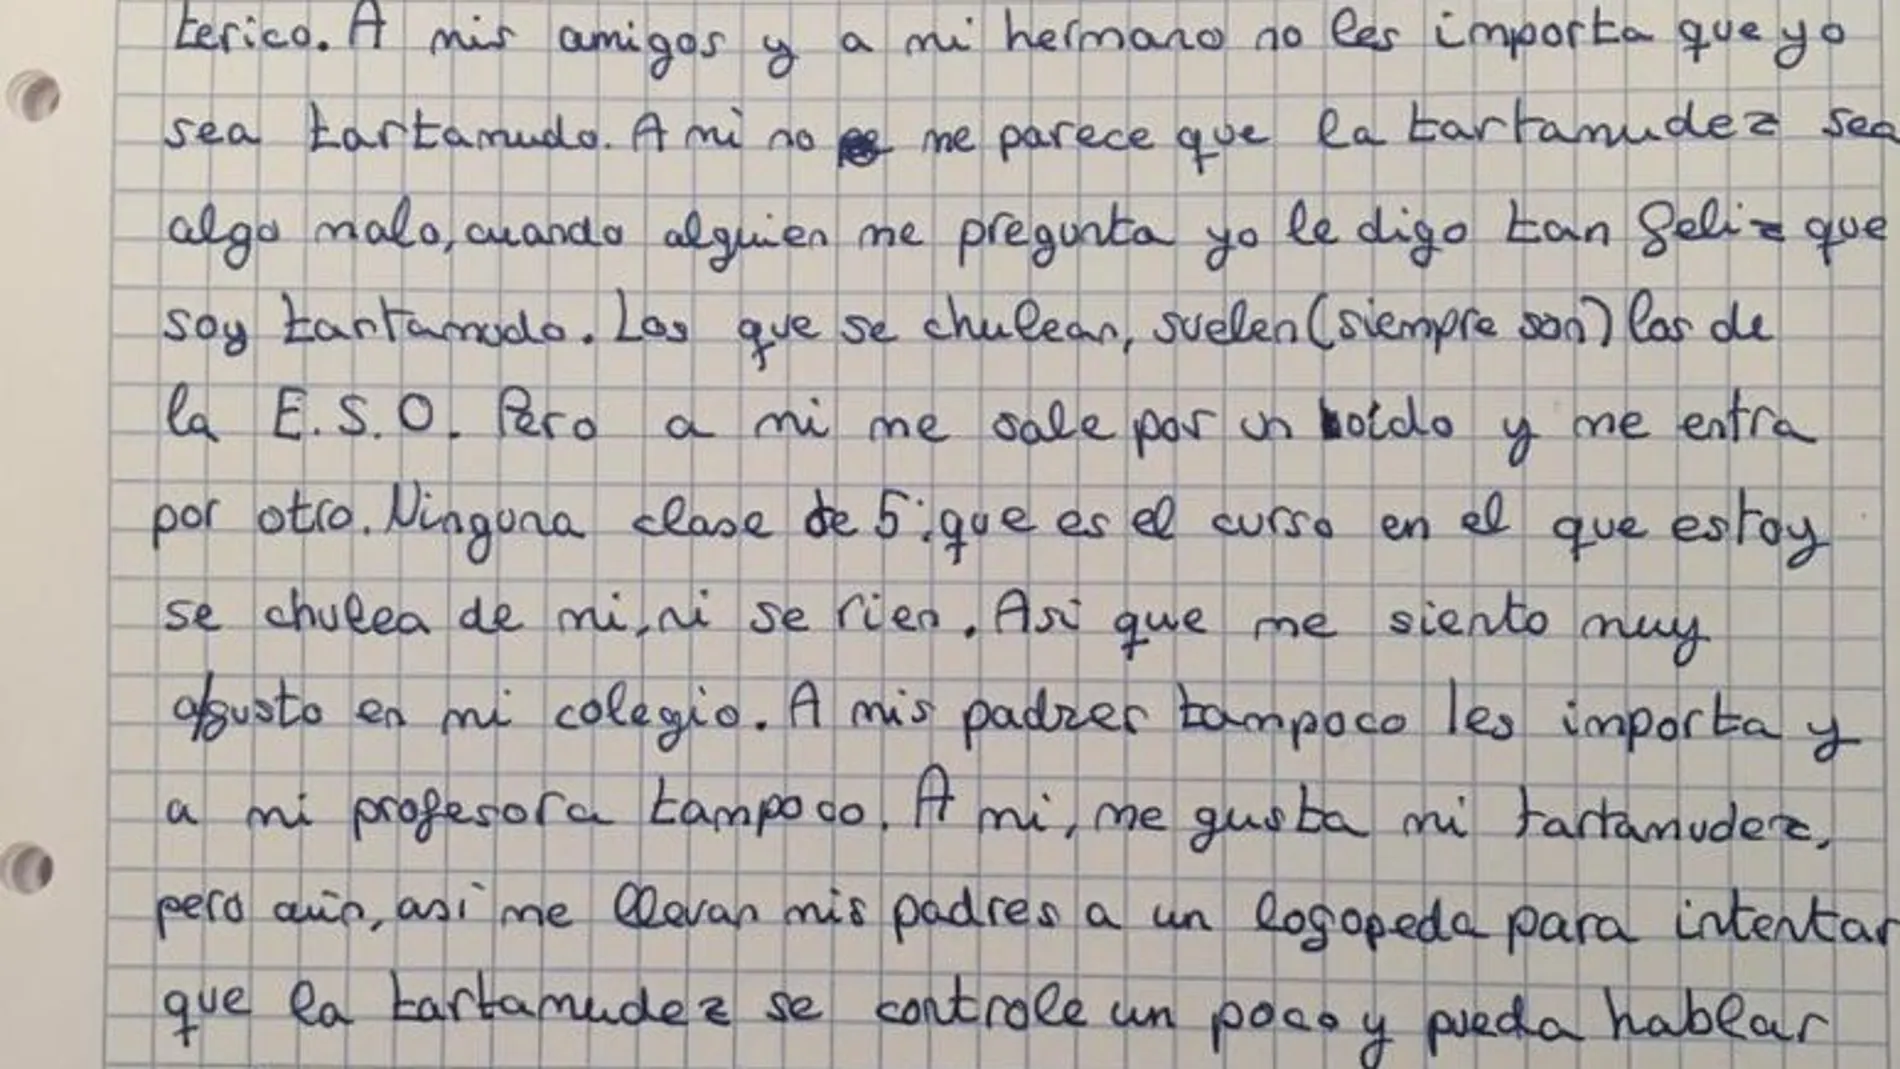 terico. A mis amigos y a mi hermano no les importa que yo
sea tartamudo. A mi no me parece que la tartamudez sea
algo malo, cuando alguien me pregunta yo le digo tan feliz que
soy tartamudo. Los que se chulean, suelen (siempre son) los de
la E.S.O. Pero a mi me sale por un oido y me entra
por otro. Ninguna clase de 5º: que es el curso en el que estoy
se chulea de mi, ni se rien. Asi que me siento muy
a/gusto en mi colegio. A mis padres tampoco les importa y
a mi profesora tampoco. A mi, me gusta mi tartamudez,
pero aún, asi me llevan mis padres a un logopeda para intentar
que la tartamudez se controle un poco y pueda hablar